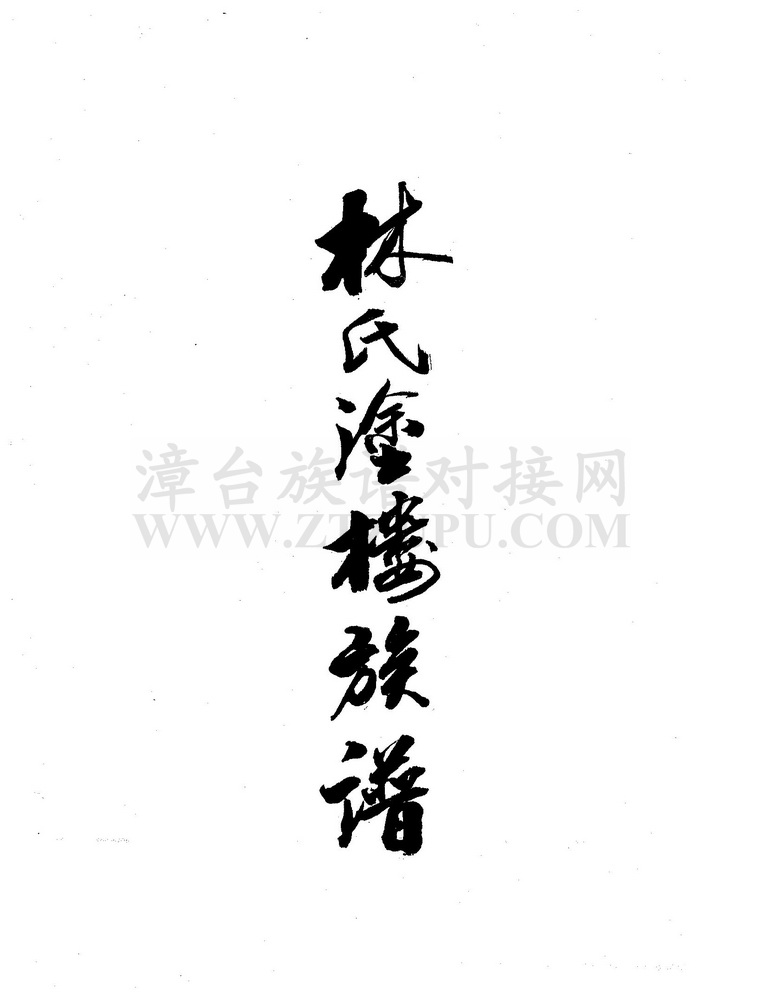 林氏塗楼族譜
漳台族谱对接网
WWW.ZTZUPU.COM